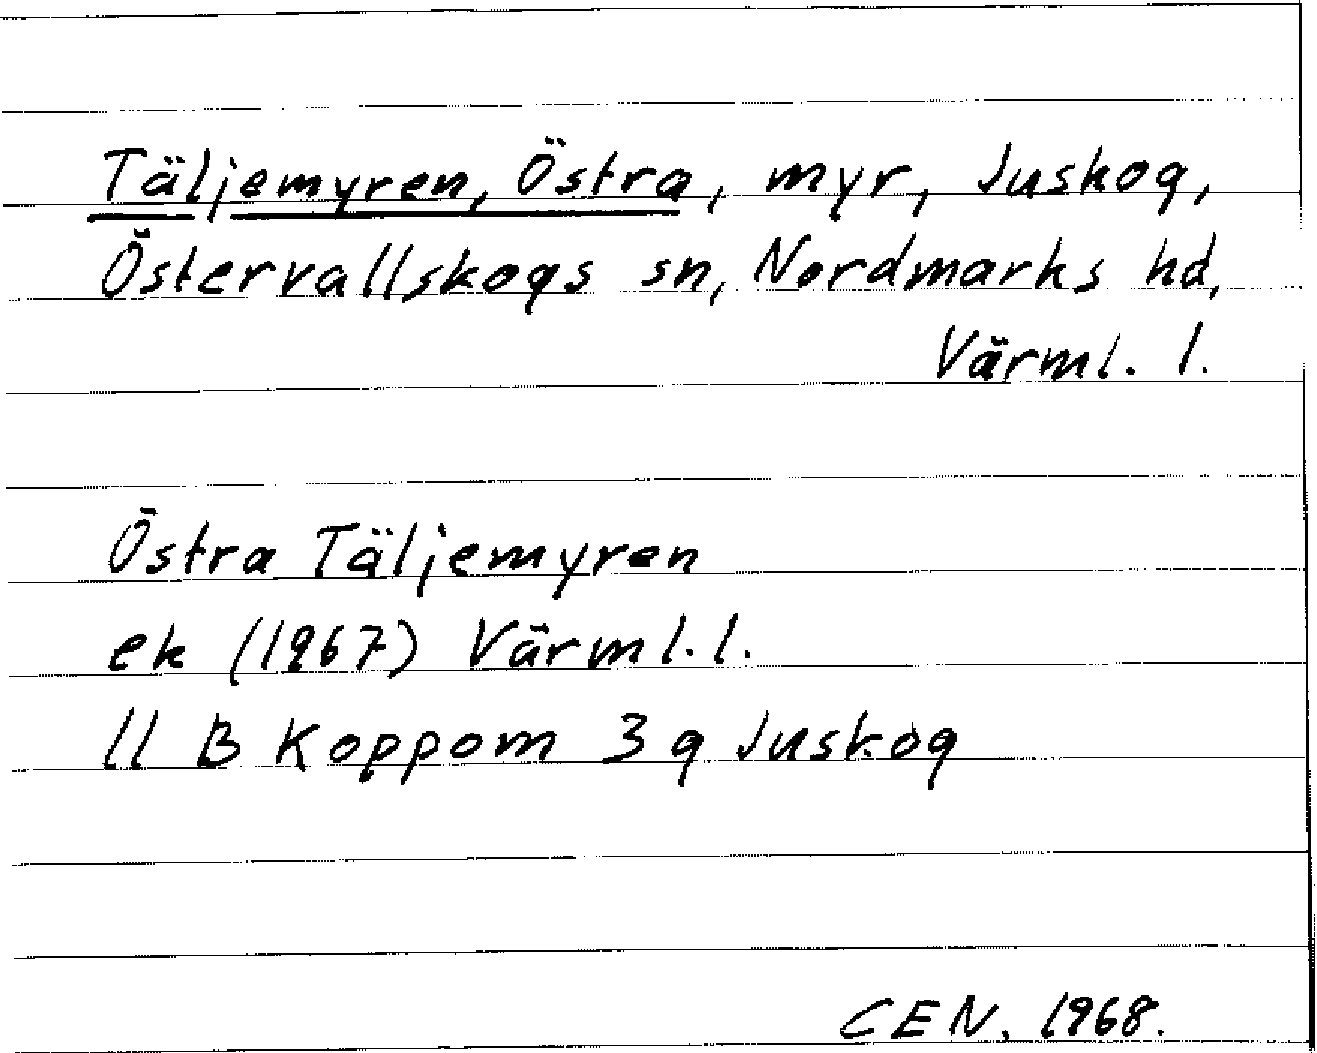 Täljemyren, Östra, myr, Juskog,
Östervallskogs sn, Nordmarks hd,
Värml. l.
Östra Täljemyren
ek (1967) Värml. l.
11 B Koppom 3 g Juskog
CEN, 1968.